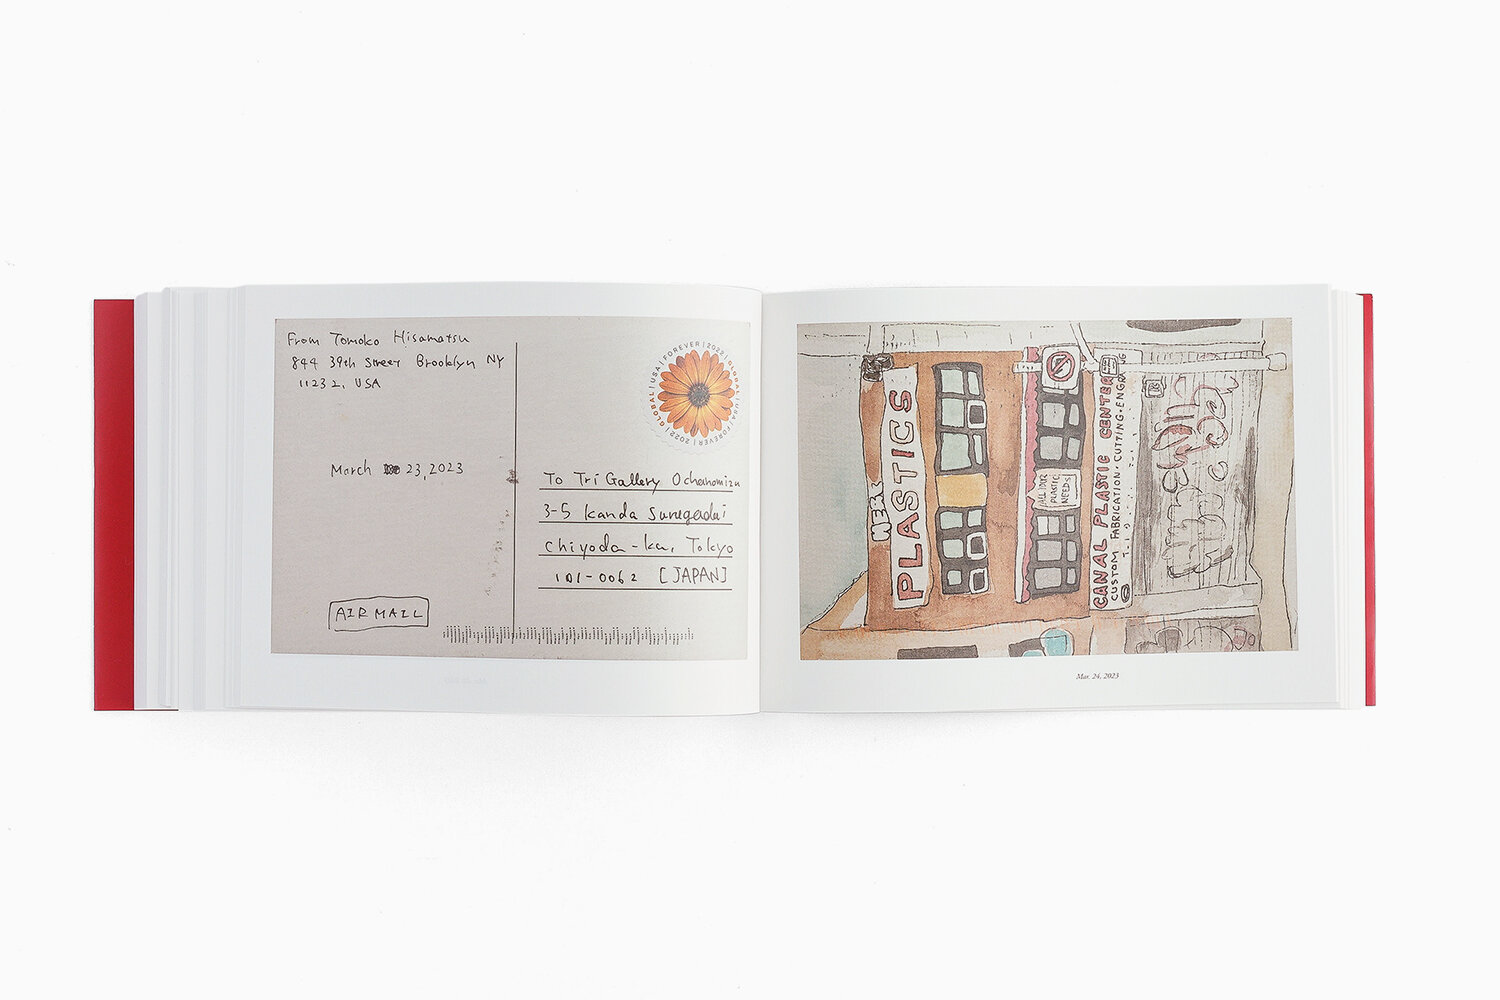 From Tomoko Hisamatsu
844 39th Street Brooklyn NY
11232, USA
March 23, 2023
AIR MAIL
GLOBAL | USA | FOREVER | 2022 | GLOBAL | USA | FOREVER | 2022 |
To Tri Gallery Ochanomizu
3-5 Kanda Surugadai
Chiyoda-ku, Tokyo
101-0062 [JAPAN]
PLASTICS
ALL YOUR
PLASTIC
NEEDS
CANAL PLASTIC CENTER
CUSTOM FABRICATION · CUTTING · ENGRAVING
Mar. 24, 2023